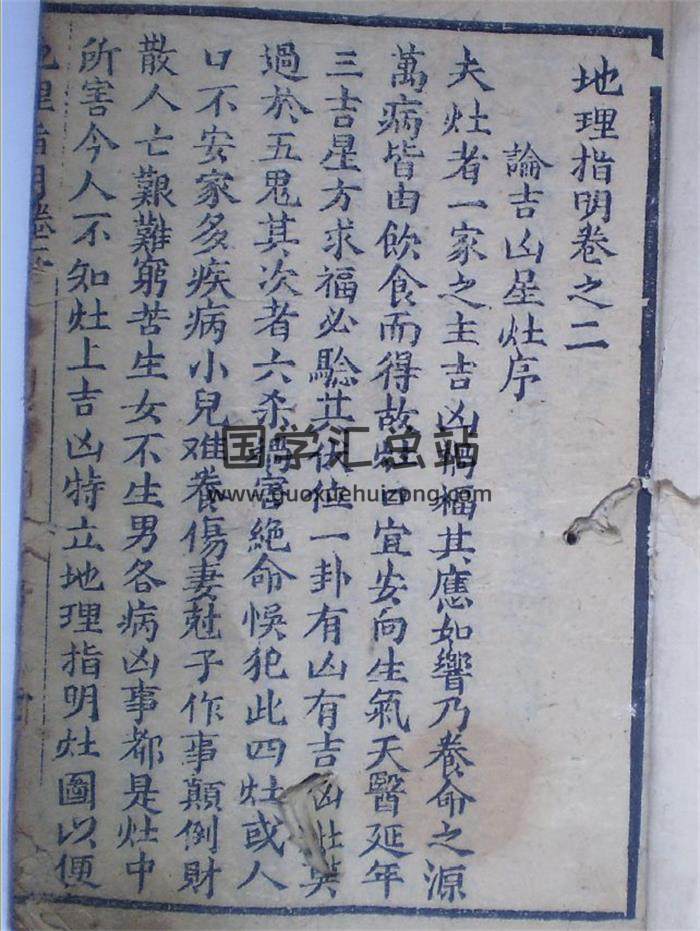 地理指明卷之二
論吉凶星灶序
夫灶者一家之主吉凶禍福其應如響乃養命之源
萬病皆由飲食而得故灶口宜安向生氣天醫延年
三吉星方求福必驗其伏位一卦有凶有吉凶灶莫
過於五鬼其次者六杀禍害絕命悞犯此四灶或人
口不安家多疾病小兒难養傷妻尅子作事顛倒財
散人亡艱難窮苦生女不生男各病凶事都是灶中
所害今人不知灶上吉凶特立地理指明灶圖以便
地理指明卷二
国学汇总站
www.guoxuehuizong.com